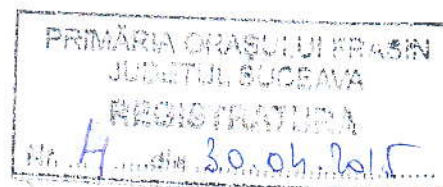 PRIMĂRIA ORAŞULUI FRASIN
JUDEŢUL SUCEAVA
REGISTRATURA
Nr. 4 din 30.04.2015